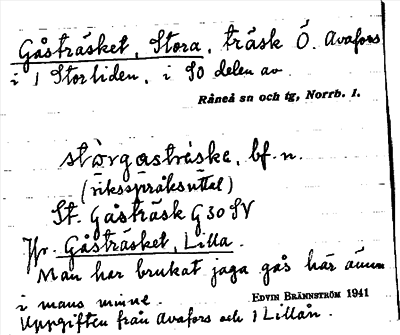 Gåsträsket, Stora, träsk Ö. Avafors
i 1 Storliden, i SO delen av
Råneå sn och tg, Norrb. l.
stòrgastráske, bf. n.
(riksspråksuttal)
St. Gåsträsk G 30 SV
Jfr. Gåsträsket, Lilla.
Man har brukat jaga gås här ännu
i mans minne.
EDVIN BRÄNNSTRÖM 1941
Uppgiften från Avafors och 1 Lillån.